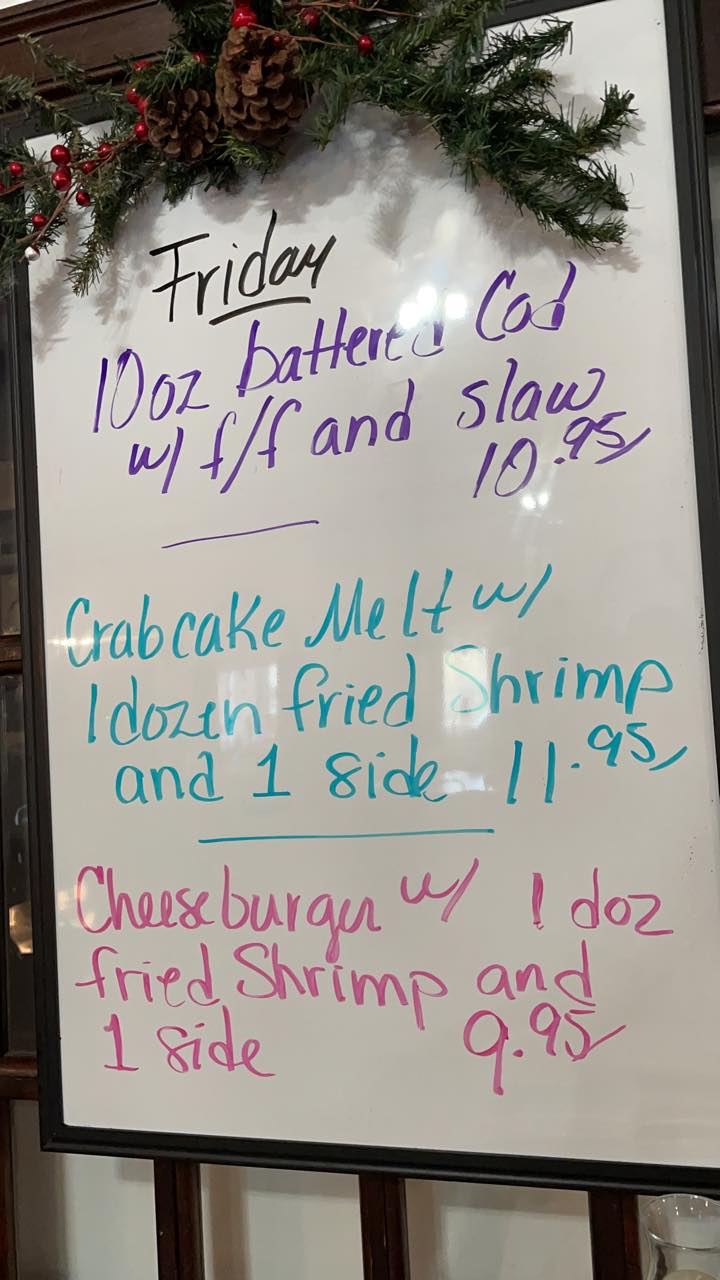 Friday
10oz battered Cod
w/ f/f and slaw
10.95
Crabcake Melt w/
1 dozen fried Shrimp
and 1 side 11.95
Cheeseburger w/ 1 doz
fried Shrimp and
1 side 9.95